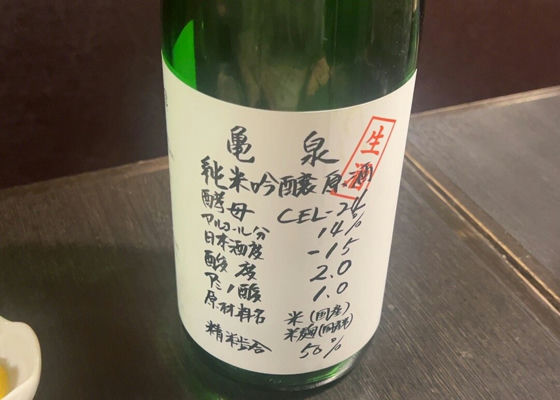 亀泉
生酒
純米吟醸原酒
酵母 CEL-24
アルコール分 14%
日本酒度 -15
酸度 2.0
アミノ酸 1.0
原材料名 米(国産)
米麹(国産米)
精米歩合 50%